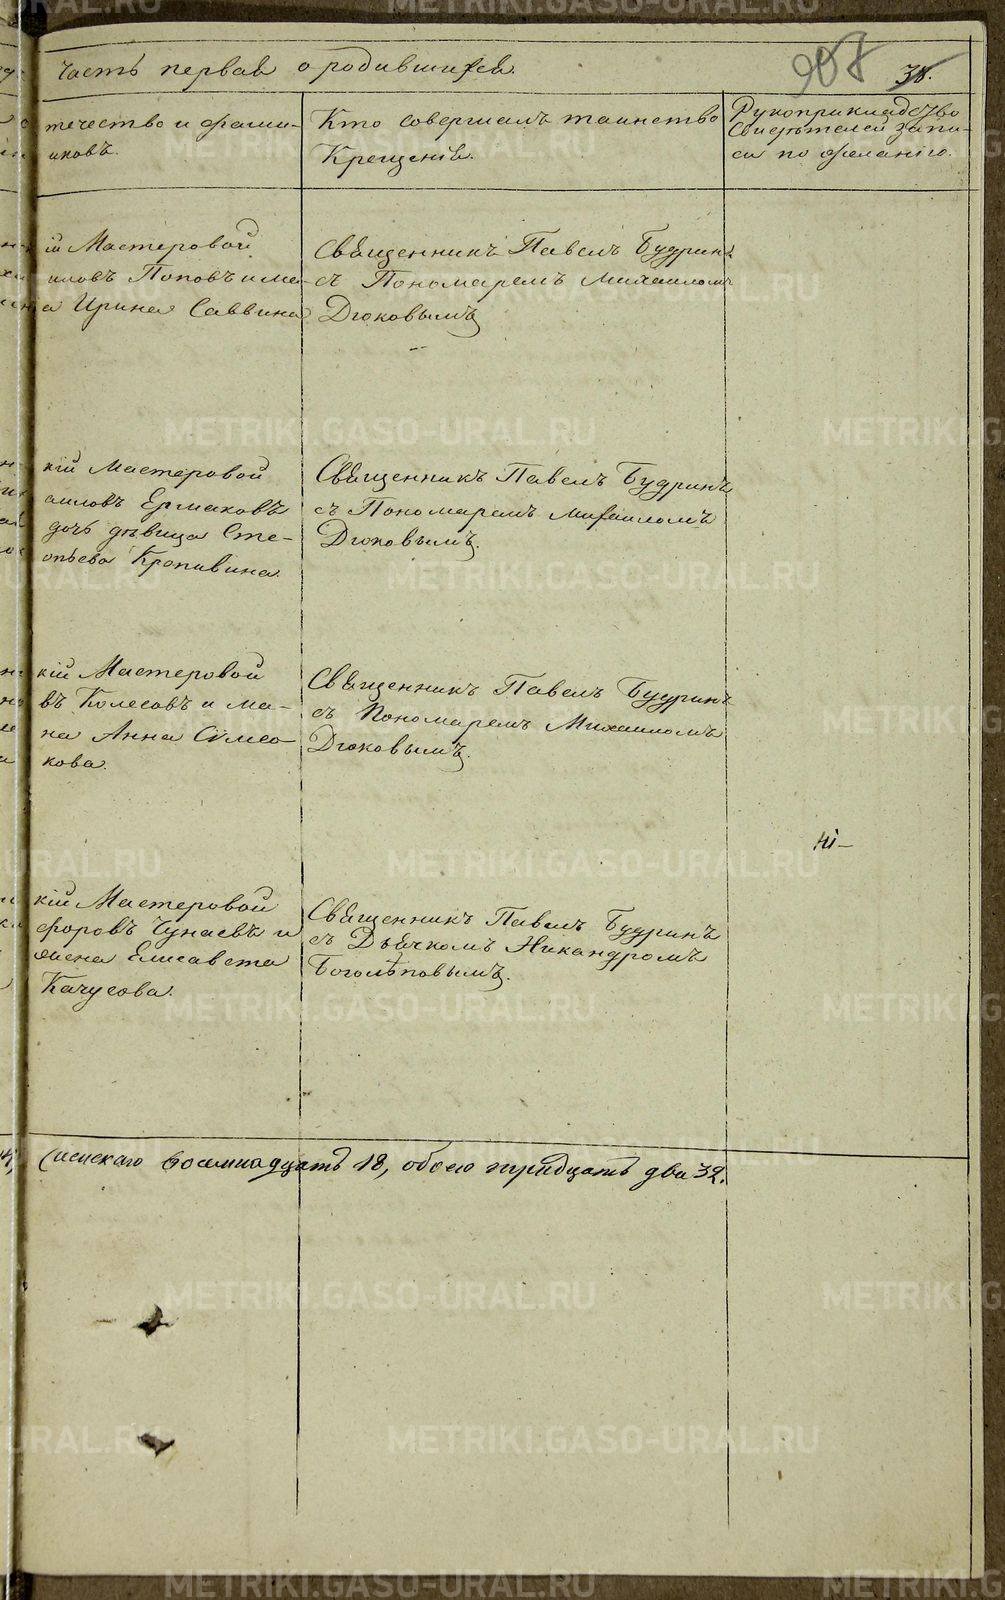 Часть первая о родившихся.
908 38.
течество и фами-
иковъ.
Кто совершалъ таинство
Крещенія.
Рукоприкладство
Свидѣтелей запи-
си по желанію.
ій Мастеровой
иловъ Поповъ и же-
а Ирина Саввина
Священникъ Павелъ Будринъ
съ Пономаремъ Михаиломъ
Дюковымъ
кій Мастеровой
аиловъ Ермаковъ
дочь дѣвица Сте-
опьева Кропивина
Священникъ Павелъ Будринъ
съ Пономаремъ Михаиломъ
Дюковымъ.
кій Мастеровой
въ Колесовъ и же-
на Анна Симео-
кова.
Священникъ Павелъ Будринъ
съ Пономаремъ Михаиломъ
Дюковымъ.
кій Мастеровой
форовъ Чунаевъ и
жена Елисавета
Качусова.
Священникъ Павелъ Будринъ
съ Дьячкомъ Никандромъ
Боголѣповымъ.
женскаго восемнадцать 18, обоего тридцать два 32.
METRIKI.GASO-URAL.RU